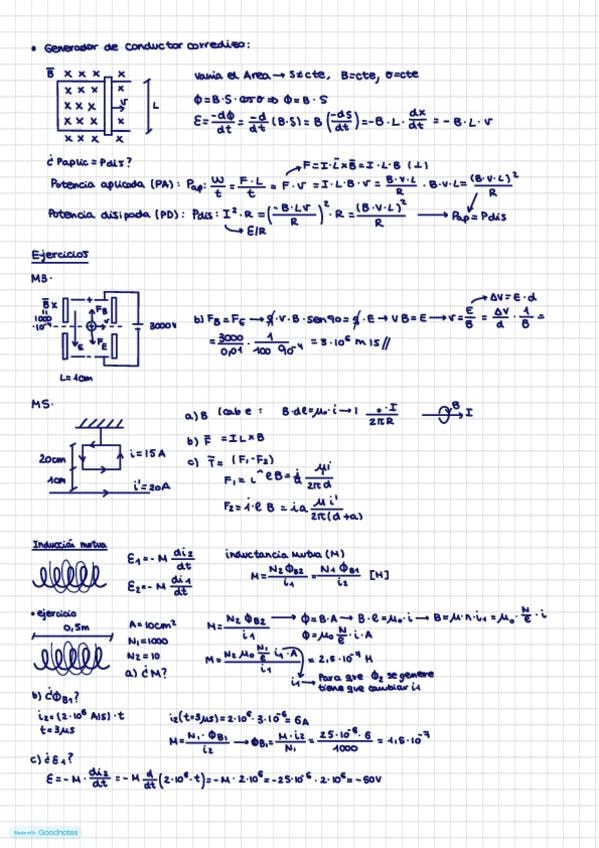 • Generador de conductor corredizo:
B̄ x x x x
x x x x
x x x x
x x x x
x x x x
v
L
varia el Area → S≠cte, B=cte, σ=cte
Φ=B·S·cosσ ⇒ Φ=B·S
ε=-dΦ/dt=-d/dt(B·S)=B(-dS/dt)=-B·L·dx/dt=-B·L·v
¿Paplic=Pdis?
F=I·L̄×B̄=I·L·B (⊥)
Potencia aplicada (PA): Pap: W/t=F·L/t=F·v=I·L·B·v=B·v·L/R·B·v·L=(B·v·L)²/R
Potencia disipada (PD): Pdis: I²·R=(-B·L·v/R)²·R=(B·v·L)²/R → Pap=Pdis
→ E/R
Ejercicios
M3·
B̄ x
1000
·10⁻⁴
+
FB
v
E
FE
-
3000V
L=1cm
→ ΔV=E·d
b) FB=FE → q·v·B·sen90=q·E → vB=E → v=E/B=ΔV/d·1/B=
=3000/0,01·1/100 90⁻⁴=3·10⁶ m/s//
M5·
20cm
1cm
i=15A
i'=20A
a) B (cable: B·dl=μ₀·i → 1 I/2πR
B
I
b) F̄ =IL×B
c) T̄= (F₁-F₂)
F₁= i^ℓB=i μi/2πd
F₂=i·ℓ B=ia μi'/2π(d+a)
Inducción mutua
ε₁=-M di₂/dt
ε₂=-M di₁/dt
inductancia mutua (M)
M=N₂ΦB₂/i₁=N₁ΦB₁/i₂ [H]
• ejercicio
0,5m
A=10cm²
N₁=1000
N₂=10
a) ¿M?
M=N₂ΦB₂/i₁ → Φ=B·A → B·ℓ=μ₀·i → B=μ·n·i₁=μ₀·N/ℓ·i
Φ=μ₀N/ℓ·i·A
M=N₂μ₀N₁/ℓ i₁·A/i₁=2,5·10⁻⁵ H
i₁ → Para que Φ₂ se genere
tiene que cambiar i₁
b) ¿ΦB₁?
i₂=(2·10⁶ A/s)·t
t=3μs
i₂(t=3μs)=2·10⁶·3·10⁻⁶=6A
M=N₁·ΦB₁/i₂ → ΦB₁=M·i₂/N₁=25·10⁻⁶·6/1000=1,5·10⁻⁷
c) ¿ε₁?
ε=-M·di₂/dt=-M d/dt(2·10⁶·t)=-M·2·10⁶=-25·10⁻⁶·2·10⁶=-50V
Made with Goodnotes